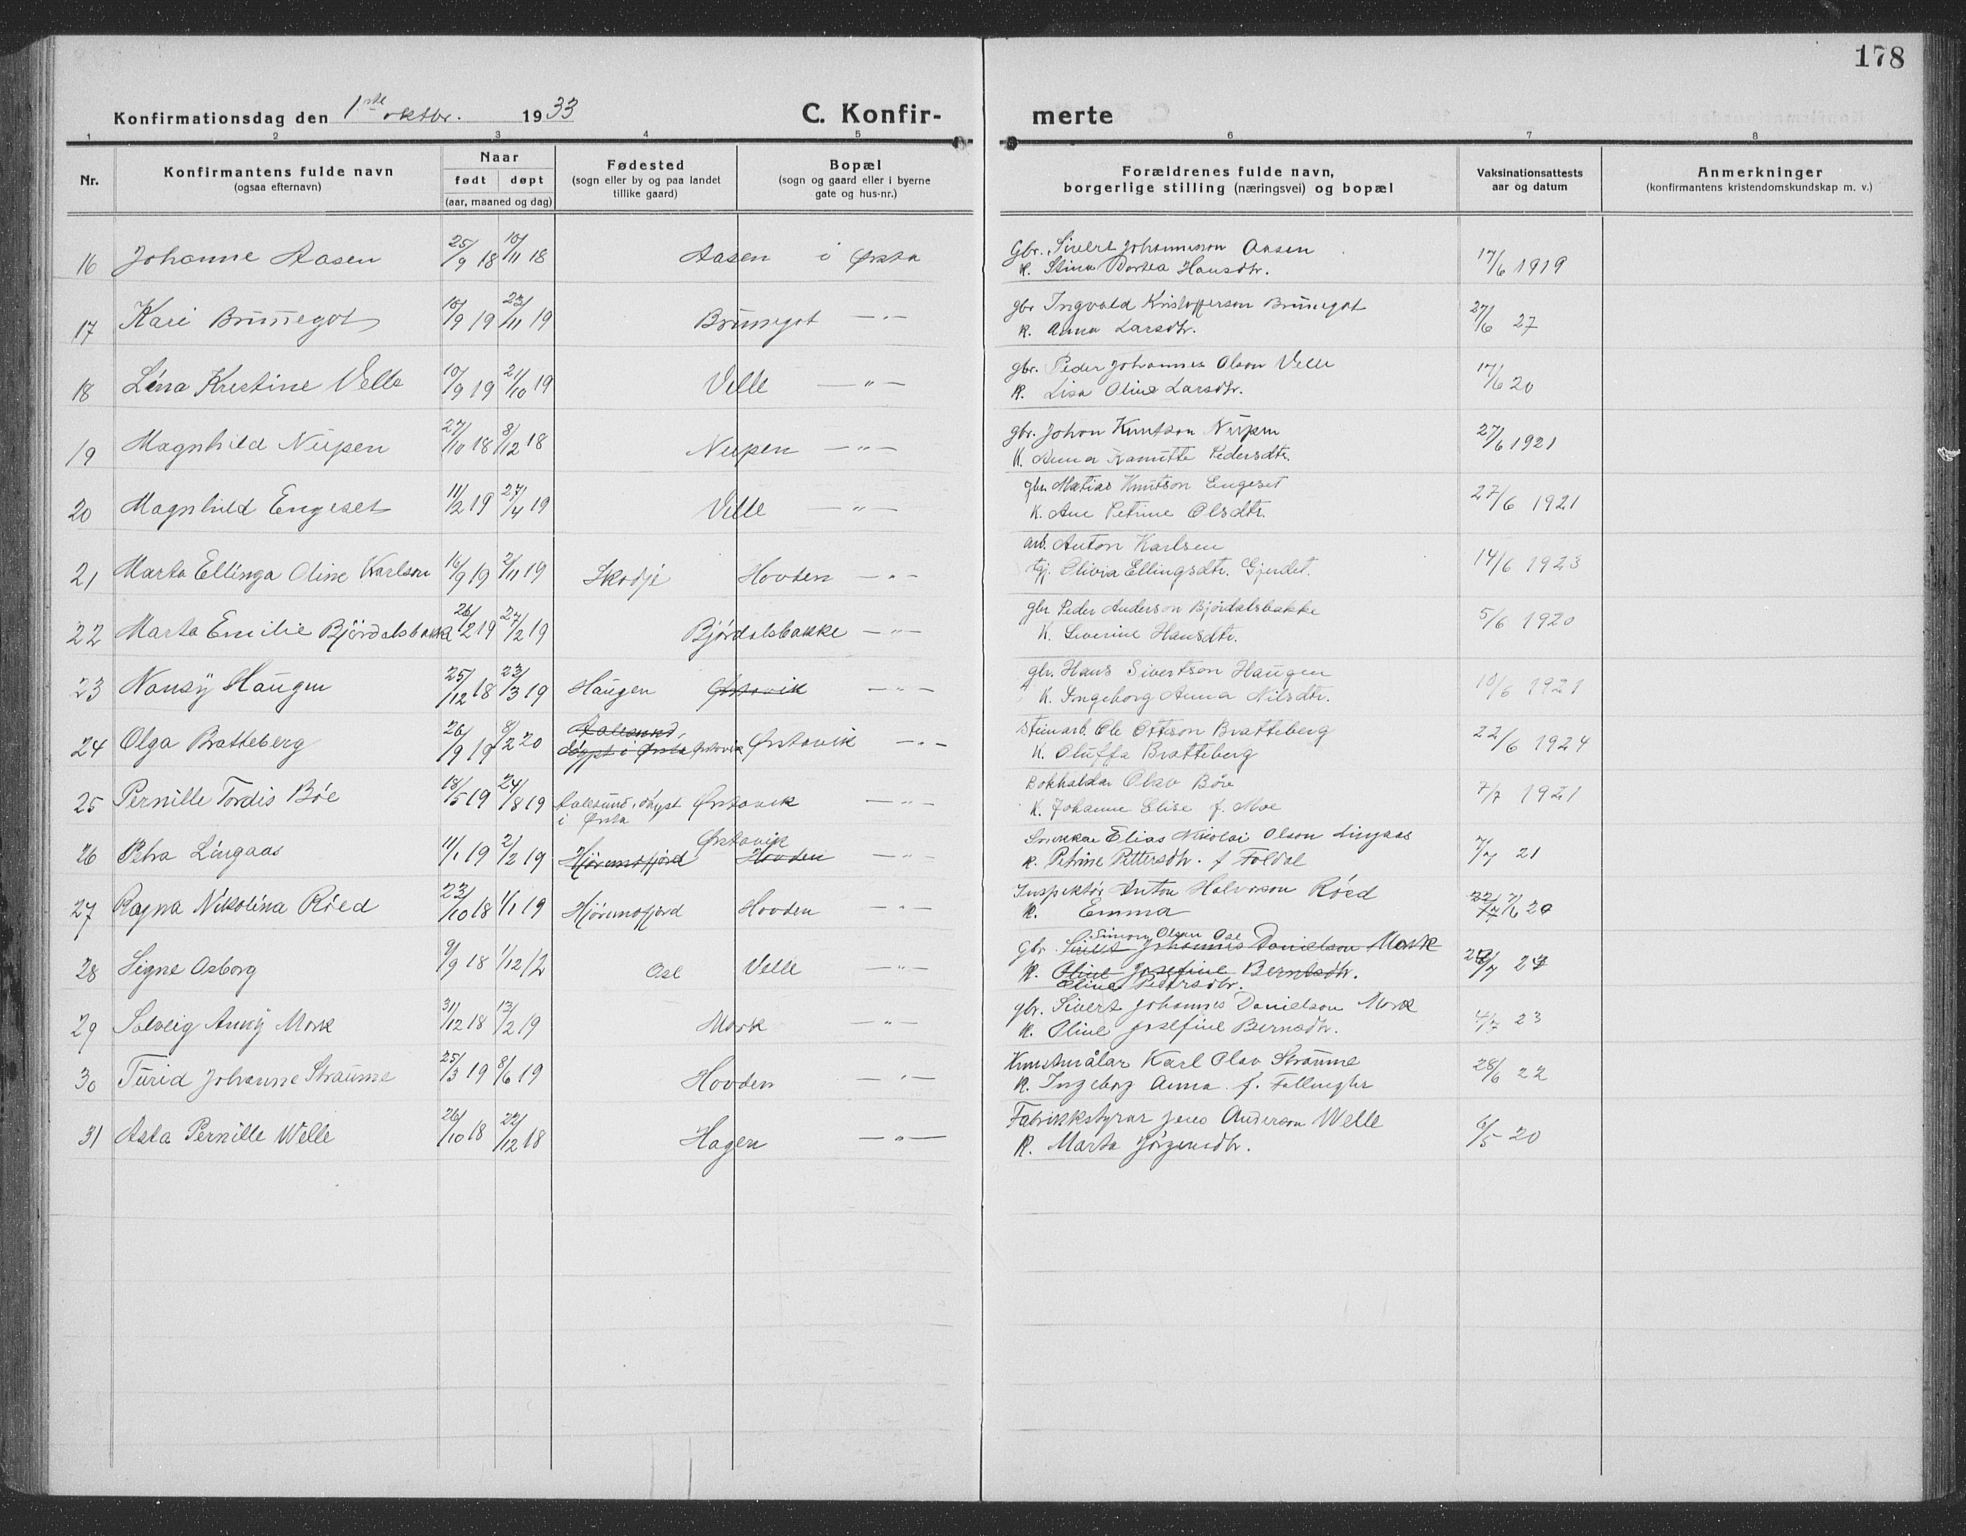 178
Konfirmationsdag den 1ste oktbr. 1933 C. Konfir- merte
1 2 3 4 5 6 7 8
Nr. Konfirmantens fulde navn (ogsaa efternavn) Naar født døpt (aar, maaned og dag) Fødested (sogn eller by og paa landet tillike gaard) Bopæl (sogn og gaard eller i byerne gate og hus-nr.) Forældrenes fulde navn, borgerlige stilling (næringsvei) og bopæl Vaksinationsattests aar og datum Anmerkninger (konfirmantens kristendomskundskap m. v.)
16 Johanne Aasen 25/9 18 10/11 18 Aasen i Ørsta Gbr. Sivert Johannesson Aasen 17/6 1919
K. Stina Dortea Hansdtr.
17 Kari Brunegot 10/9 19 23/11 19 Brunegot —"— gbr Ingvald Kristofferson Brunegot 27/6 27
K. Anna Larsdtr.
18 Lina Kristine Velle 10/9 19 21/10 19 Velle —"— gbr. Peder Johannes Olson Velle 17/6 20
K. Lisa Oline Larsdtr.
19 Magnhild Nupen 27/10 18 8/12 18 Nupen —"— gbr. Johan Knutson Nupen 27/6 1921
K. Anna Pedersdtr.
20 Magnhild Engeset 11/2 19 27/4 19 Velle —"— gbr. Matias Knutson Engeset 27/6 1921
K. Ane Petrine Olsdtr.
21 Marta Ellinga Oline Karlson 16/9 19 2/11 19 Skodje Hovden —"— arb. Anton Karlsen 14/6 1923
Olivia Ellingsdtr. Gjerdet.
22 Marta Emilie Bjørdalsbakk 26/2 19 27/2 19 Bjørdalsbakke —"— gbr Peder Anderson Bjørdalsbakke 5/6 1920
K. Severine Hansdtr.
23 Nansy Haugen 25/12 18 23/3 19 Haugen Ørstavik —"— gbr. Hans Sivertson Haugen 10/6 1921
K. Ingeborg Anna Nilsdtr.
24 Olga Bratteberg 26/9 19 8/2 20 Aalesund, døypt i Ørsta Ørstavik Ørstavik —"— Steinarb. Ole Ottson Bratteberg 22/6 1924
K. Oluffa Bratteberg
25 Pernille Tordis Bøe 18/5 19 24/8 19 Aalesund, døypt i Ørsta Ørstavik —"— Bokhaldar Olav Bøe 7/7 1921
K. Johanne Elise f. Moe
26 Petra Lingaas 11/1 19 2/2 19 Hjørundfjord Hovden Ørstavik —"— Elias Nikolai Olson Lingaas 7/7 21
K. Petrine Pettersdtr. f Foldal
27 Ragna Nikolina Røed 23/10 18 1/1 19 Hjørundfjord Hovden —"— Inspektør Anton Halvorson Røed
K. Emma
28 Signe Osborg 9/9 18 1/12 Ose Velle —"— Gbr. Sivert Johannes Danielson Mork Simon Olsen Ose
K. Oline Josefine Berntsdtr. Eline Pedersdtr.
29 Solveig Anny Mork 31/12 18 13/2 19 Mork —"— gbr. Sivert Johannes Danielson Mork 4/7 23
K. Oline Josefine Berntsdtr.
30 Turid Johanne Straume 25/3 19 8/6 19 Hovden —"— Kunstmålar Karl Olav Straume 28/6 22
K. Ingeborg Anna f.
31 Asta Pernille Welle 26/10 18 22/12 18 Hagen —"— Fabrikkstyrar Jens Anderson Welle 6/5 20
K. Marta Jørgensdtr.